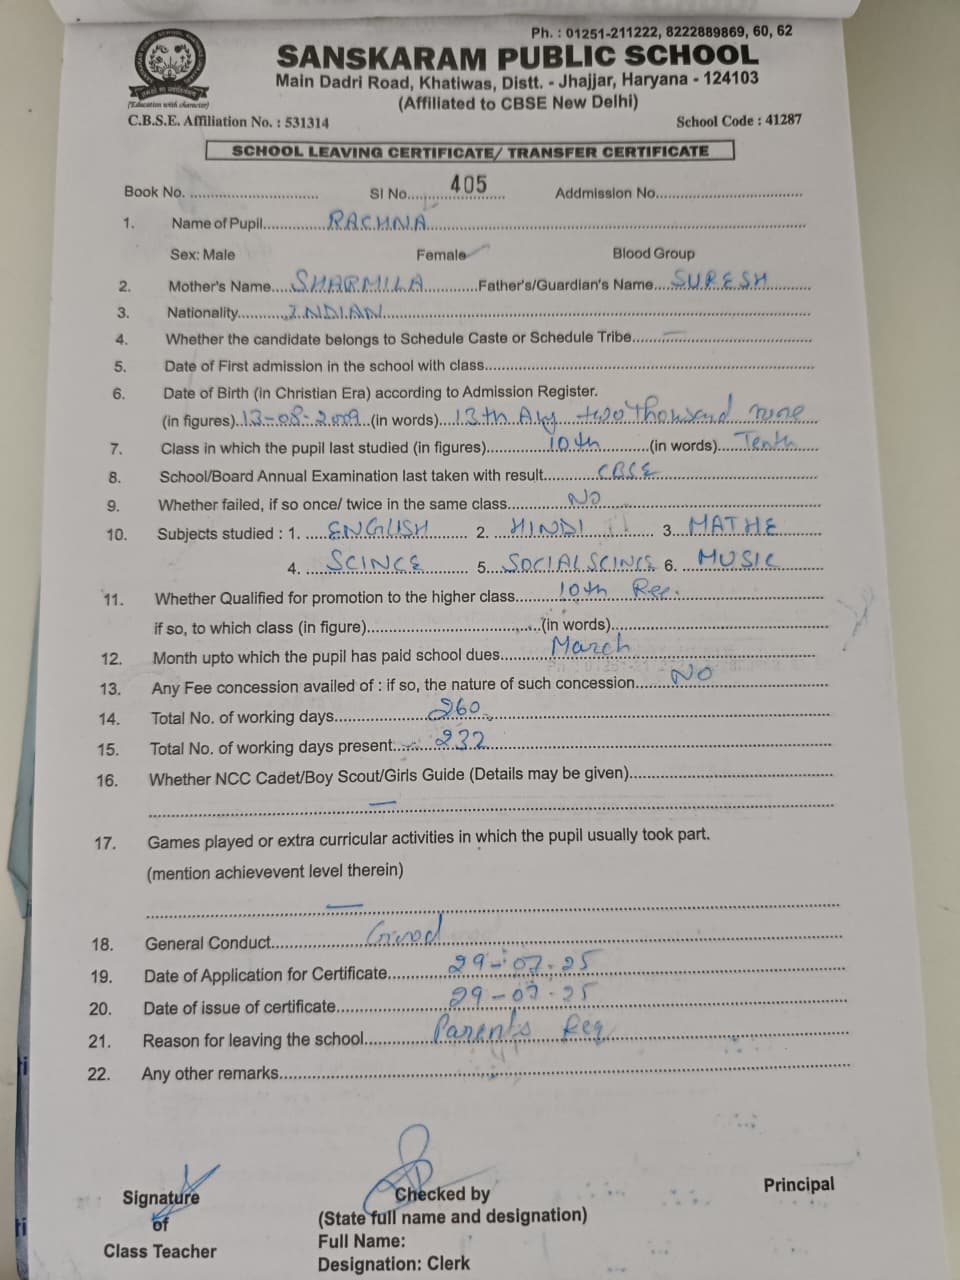 Ph. : 01251-211222, 8222889869, 60, 62
SANSKARAM PUBLIC SCHOOL
Main Dadri Road, Khatiwas, Distt. - Jhajjar, Haryana - 124103
(Affiliated to CBSE New Delhi)
(Education with character)
C.B.S.E. Affiliation No. : 531314 School Code : 41287
SCHOOL LEAVING CERTIFICATE/ TRANSFER CERTIFICATE
Book No. .............. Sl No. 405 Addmission No..............
1. Name of Pupil.............. RACHNA
Sex: Male Female Blood Group
2. Mother's Name.... SHARMILA ..........Father's/Guardian's Name.... SURESH
3. Nationality........... INDIAN
4. Whether the candidate belongs to Schedule Caste or Schedule Tribe..... —
5. Date of First admission in the school with class..............
6. Date of Birth (in Christian Era) according to Admission Register.
(in figures). 13-08-2009 ..(in words)... 13th two Thousand nine
7. Class in which the pupil last studied (in figures).............. 10th ..........(in words).... Tenth
8. School/Board Annual Examination last taken with result........... CBSE
9. Whether failed, if so once/ twice in the same class............ NO
10. Subjects studied : 1. .... ENGLISH 2. ... HINDI 3. MATHE
4. ... SCINCE 5. SOCIAL SCINCS 6. MUSIC
11. Whether Qualified for promotion to the higher class......... 10th
if so, to which class (in figure)..............(in words)..............
12. Month upto which the pupil has paid school dues.......... March
13. Any Fee concession availed of : if so, the nature of such concession....... NO
14. Total No. of working days.............. 260
15. Total No. of working days present......... 232
16. Whether NCC Cadet/Boy Scout/Girls Guide (Details may be given)..............
—
17. Games played or extra curricular activities in which the pupil usually took part.
(mention achievevent level therein)
—
18. General Conduct.............. Good
19. Date of Application for Certificate............ 29-07-25
20. Date of issue of certificate.............. 29-07-25
21. Reason for leaving the school............ Parents Req
22. Any other remarks..............
Signature
of
Class Teacher
Checked by
(State full name and designation)
Full Name:
Designation: Clerk
Principal